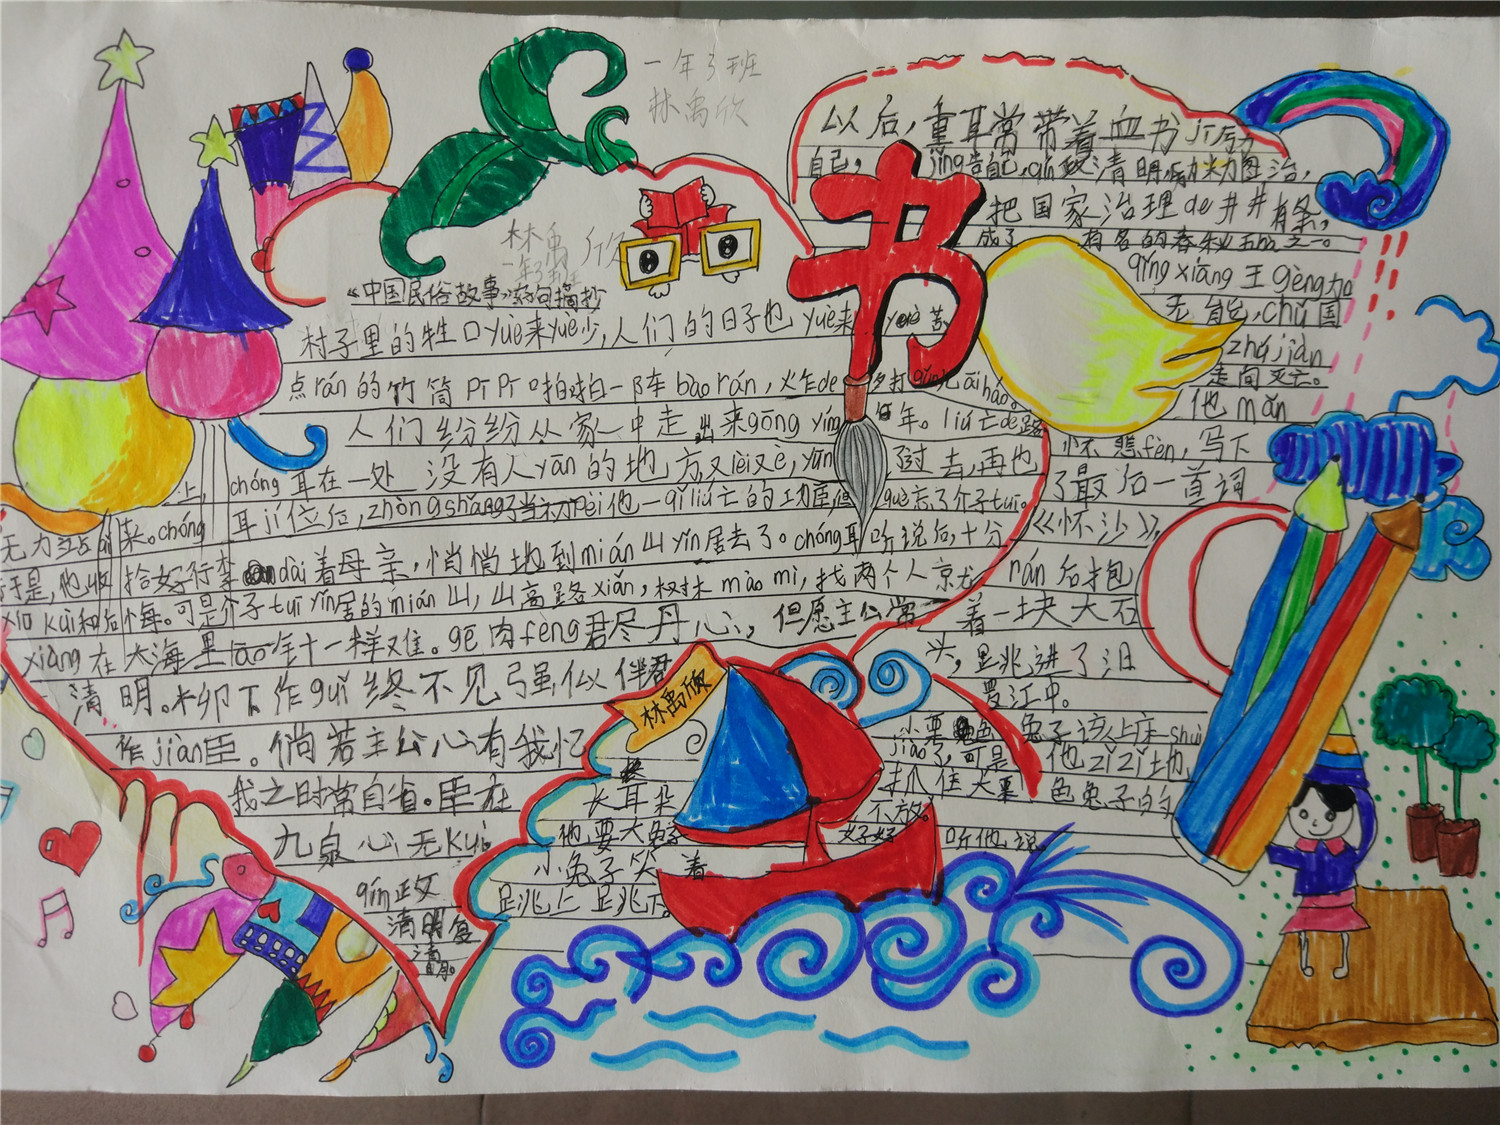 一年3班
林禹欣
林禹欣
一年3班
《中国民俗故事》好句摘抄
村子里的牲口yuè来yuè少,人们的日子也yuè来yuè苦
点rán的竹筒pī pī啪啪一阵bào rán,火乍de
人们纷纷从家中走出来gōng yíng 年。liú亡de路
上, chóng耳在一处没有人yān的地方又lèi又è, 过去,再也
无力站 来。chóng耳jí位后,zhòng shǎng了当初péi他一qǐ liú亡的功臣,但 guò忘了介子tuī。
于是,他收拾好行李 dài着母亲,悄悄地到mián山yǐn居去了。chóng耳听说后,十分
xiū kuì和后悔。可是介子tuī yǐn居的mián山,山高路xiǎn,树林mào mì,找两个人
xiàng在大海里lāo针一样难。gē肉fèng君尽丹心,但愿主公常
清明。柳下作guǐ终不见强似伴君
作jiàn臣。倘若主公心有我忆
我之时常自省。臣在
九泉心无kuì
qín政
清明复
清明。
书
以后,重耳常带着血书
自己, jǐng告自己,qín政清明,励力图治,
把国家治理de井井有条,
成了 有名的春秋五bà之一。
qǐng xiāng王gèng加
无能,chǔ国
zhú jiàn
走向灭亡。
他mǎn
怀悲fèn,写下
了最后一首词
《怀沙》,
rán后抱
着一块大石
头,跳进了汨
罗江中。
林禹欣
小栗色兔子该上床shuì
jiào了,可是他zǐ zǐ地
抓住大栗色兔子的
长耳朵不放。
他要大兔子好好听他说。
小兔子笑着
跳上跳下。